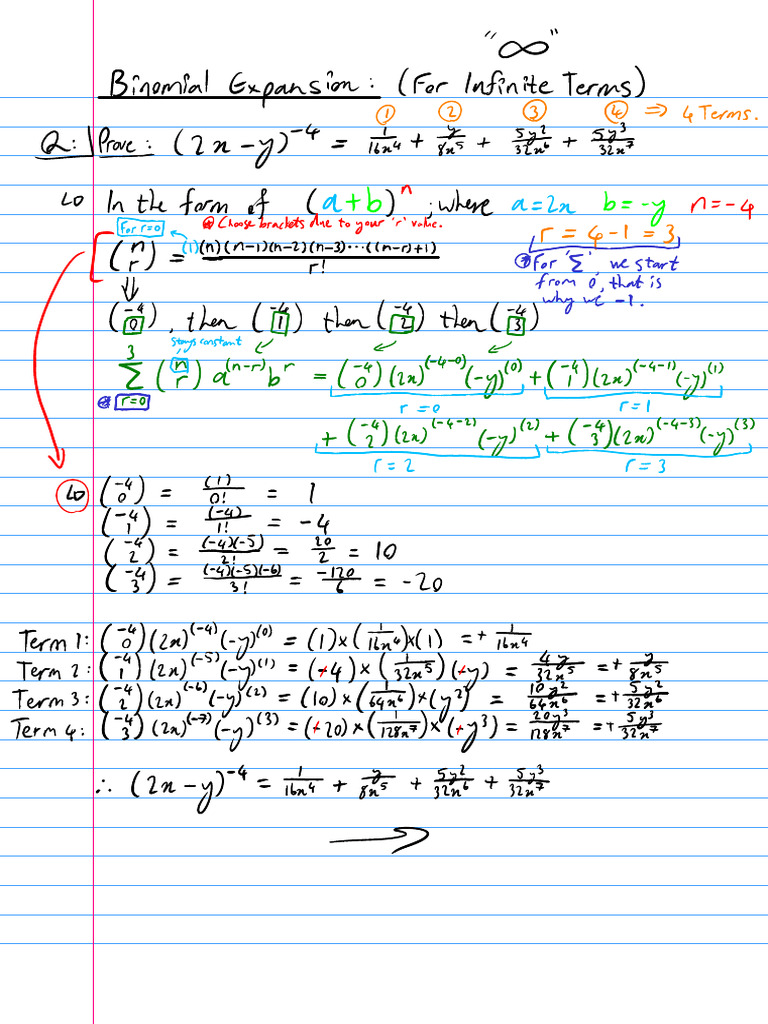 "∞"
Binomial Expansion: (For Infinite Terms)
① ② ③ ④ ⇒ 4 Terms.
Q: Prove: (2x-y)^-4 = 1/16x^4 + y/8x^5 + 5y^2/32x^6 + 5y^3/32x^7
↳ In the form of (a+b)^n ; where a=2x b=-y n=-4
For r=0 Choose brackets due to your 'r' value. r = 4-1 = 3
(n r) = (1)(n)(n-1)(n-2)(n-3)...((n-r)+1) / r!
For 'Σ', we start
from 0, that is
why we -1.
(-4 0), then (-4 1) then (-4 2) then (-4 3)
stays constant
3 Σ r=0 (n r) a^(n-r) b^r = (-4 0)(2x)^(-4-0) (-y)^(0) + (-4 1)(2x)^(-4-1) (-y)^(1)
r=0 r=1
+ (-4 2)(2x)^(-4-2) (-y)^(2) + (-4 3)(2x)^(-4-3) (-y)^(3)
r=2 r=3
↳ (-4 0) = (1)/0! = 1
(-4 1) = (-4)/1! = -4
(-4 2) = (-4)(-5)/2! = 20/2 = 10
(-4 3) = (-4)(-5)(-6)/3! = -120/6 = -20
Term 1: (-4 0)(2x)^(-4) (-y)^(0) = (1)×(1/16x^4)×(1) = + 1/16x^4
Term 2: (-4 1)(2x)^(-5) (-y)^(1) = (-4)×(1/32x^5)(-y) = 4y/32x^5 = + y/8x^5
Term 3: (-4 2)(2x)^(-6) (-y)^(2) = (10)×(1/64x^6)×(y^2) = 10y^2/64x^6 = + 5y^2/32x^6
Term 4: (-4 3)(2x)^(-7) (-y)^(3) = (-20)×(1/128x^7)×(-y^3) = 20y^3/128x^7 = + 5y^3/32x^7
∴ (2x-y)^-4 = 1/16x^4 + y/8x^5 + 5y^2/32x^6 + 5y^3/32x^7